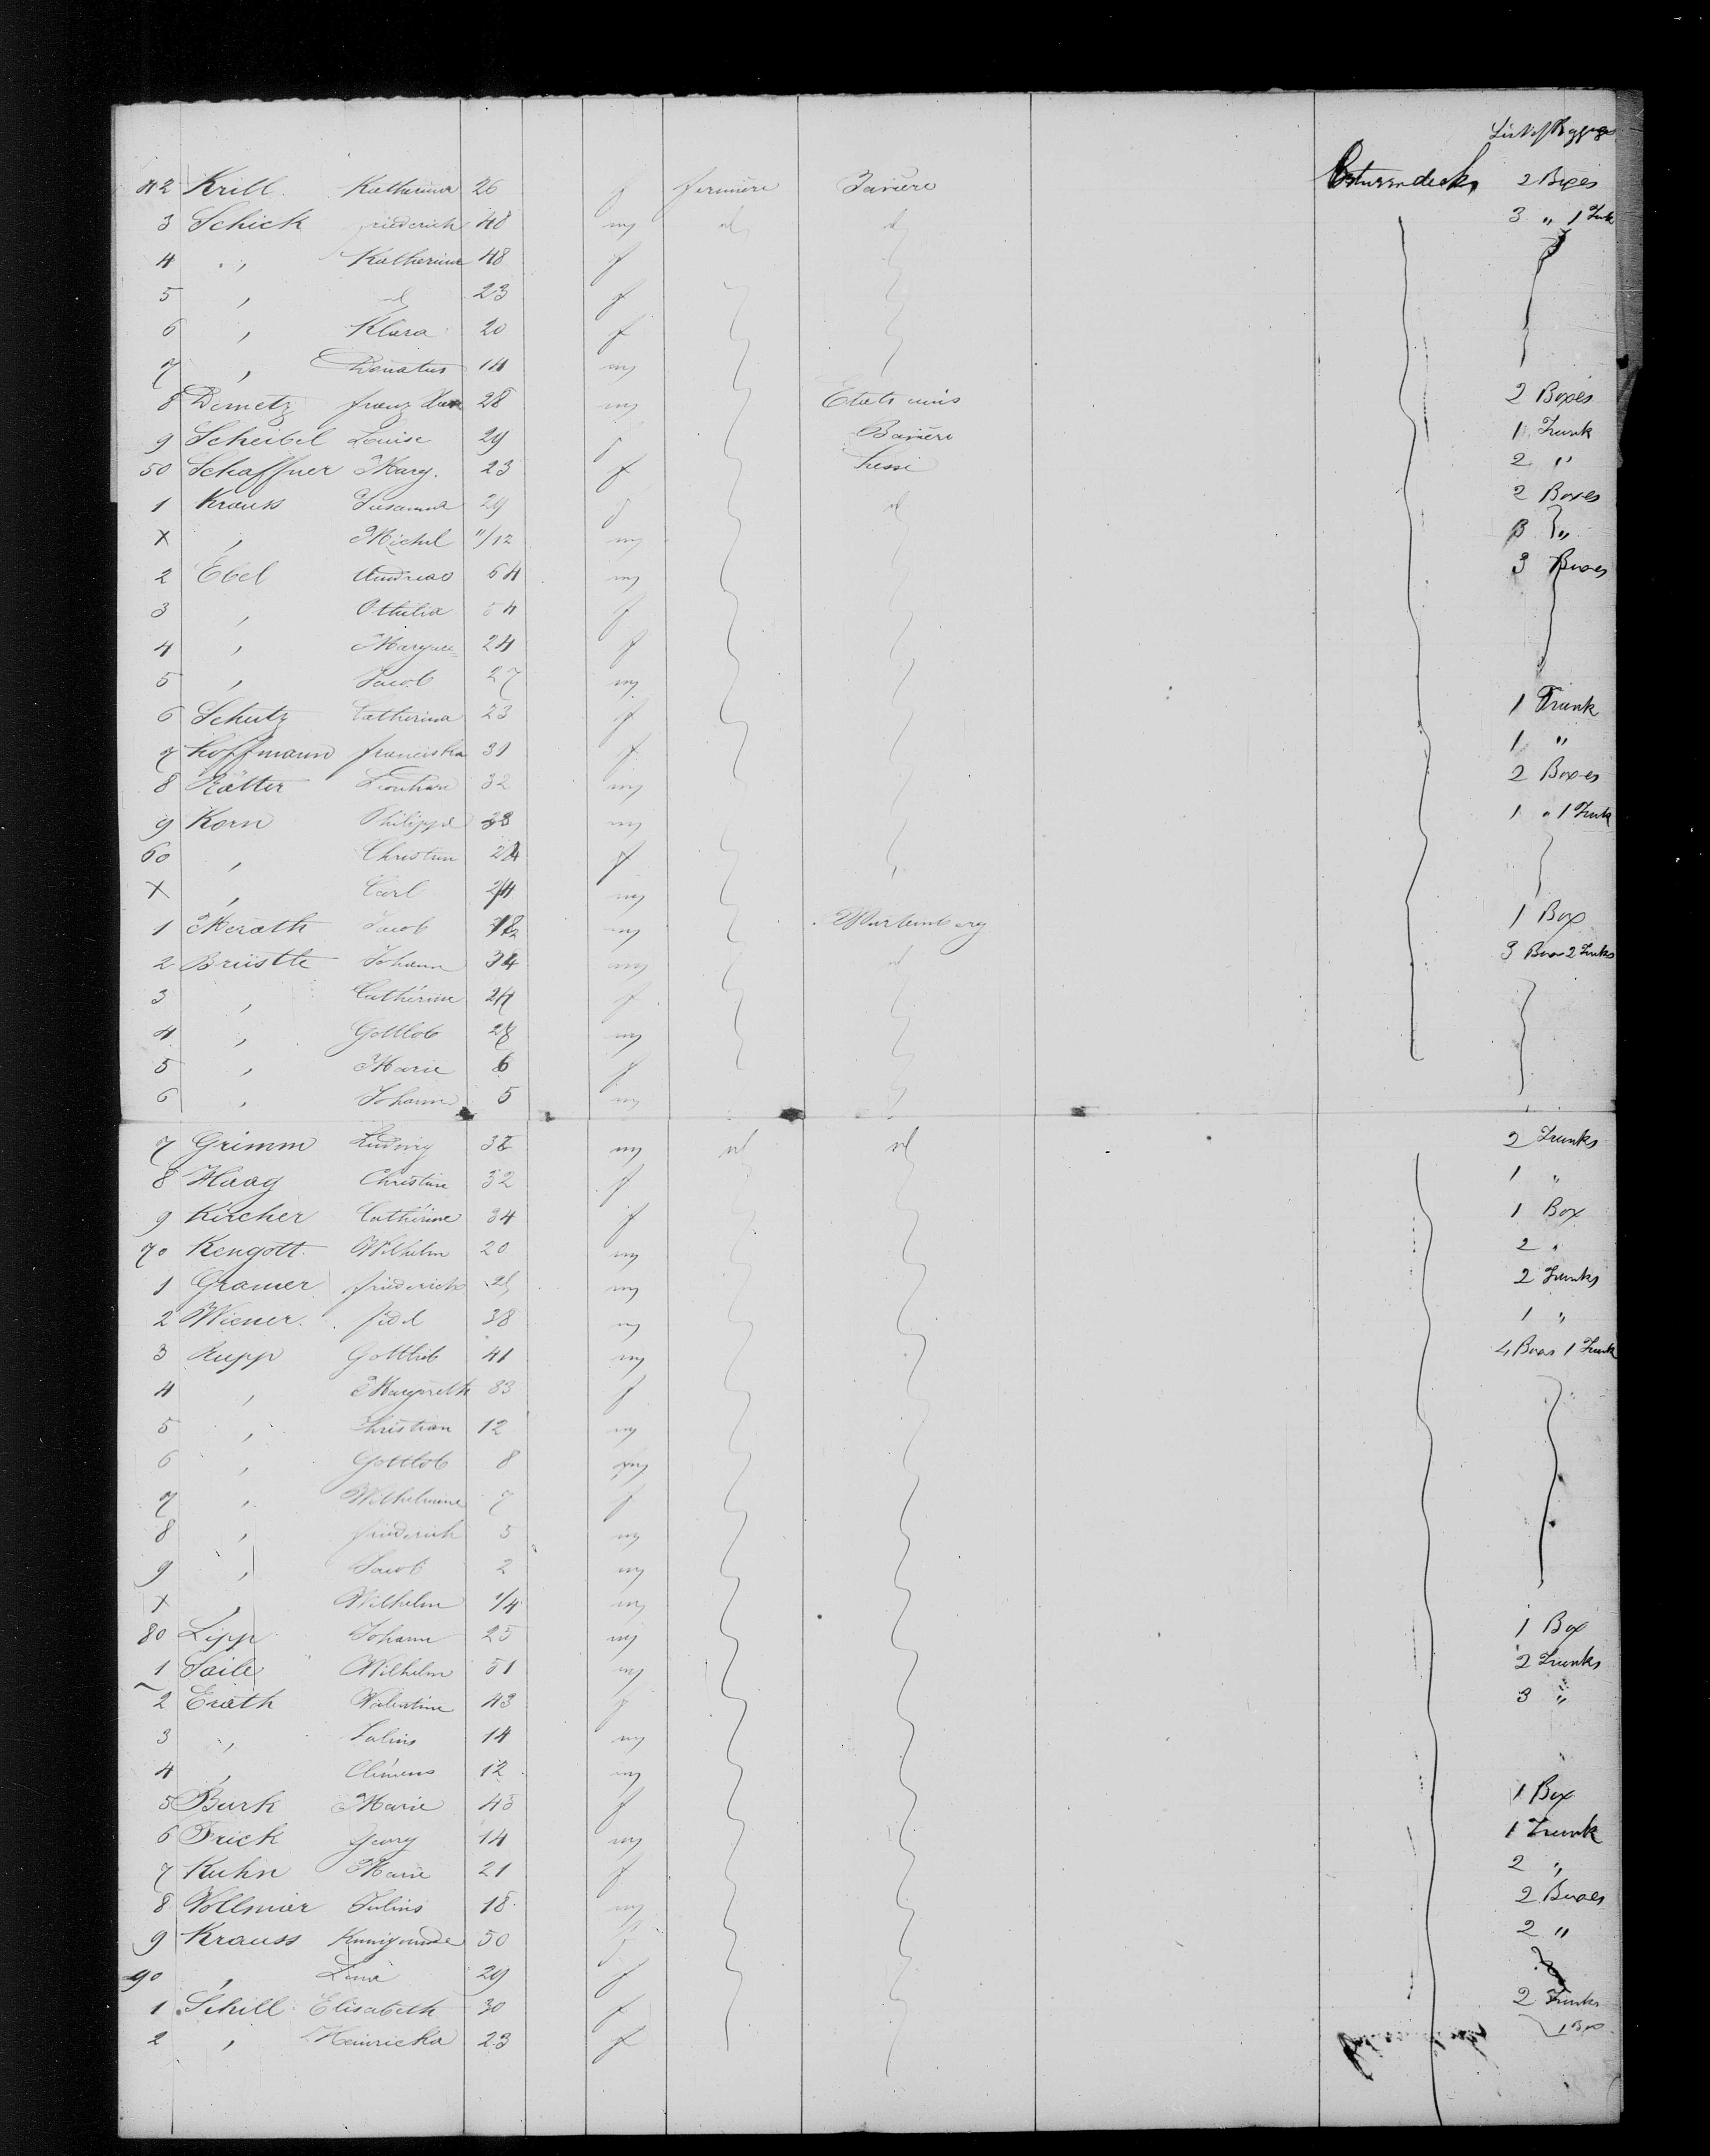 List of Baggage
42 Krill Katharina 26 f fermière Bavière Betweendecks 2 Boxes
3 Schick friederich 48 m id id 3 " 1 Trunk
4 " Katherina 48 f
5 " id 23 f
6 " Klara 20 f
7 " Donatus 14 m
8 Demetz franz 28 m Etats unis 2 Boxes
9 Scheibel Louise 29 f Bavière 1 Trunk
50 Schaffner Marg. 23 f hesse 2 "
1 Krauss Susanna 29 f id 2 Boxes
X " Michel 11/12 m "
2 Ebel Andreas 64 m 3 Boxes
3 " Ottilia 54 f
4 " Margare 24 f
5 " Jacob 27 m
6 Schutz Catherina 23 f 1 Trunk
7 Hoffmann franciska 31 f 1 "
8 Rätter Leonhard 32 m 2 Boxes
9 Korn Philippe m 1 " 1 Trunk
60 " Christine 24 f
X " Carl m
1 Merath Jacob m Wurtemberg 1 Box
2 Brüstle Johann 34 m id 3 Boxes 2 Trunks
3 " Catherine f
4 " Gottlob m
5 " Marie 6 f
6 " Johann 5 m
7 Grimm Ludwig m id id 2 Trunks
8 Haag Christine 32 f 1 "
9 Kircher Catherine 34 f 1 Box
70 Kengott Wilhelm 20 m 2 "
1 Gramer friederich m 2 Trunks
2 Wiener fidel 38 m 1 "
3 Rupp Gottlieb 41 m 4 Boxes 1 Trunk
4 " Margareth 33 f
5 " Christian 12 m
6 " Gottlob 8 m
7 " Wilhelmine 7 f
8 " friederich 3 m
9 " Jacob 2 m
X " Wilhelm 1/4 m
80 Lipp Johann 25 m 1 Box
1 Saile Wilhelm 51 m 2 Trunks
2 Erath Valentine 43 f 3 "
3 " Julius 14 m
4 " Clemens 12 m
5 Burk Marie 45 f 1 Box
6 Frick Georg 14 m 1 Trunk
7 Kuhn Marie 21 f 2 "
8 Vollmer Julius 18 m 2 Boxes
9 Krauss Kunigunde 50 f 2 "
90 " Lina 29 f
1 Schill Elisabeth 30 f 2 Trunks
2 " Heinricka 23 f 1 Box